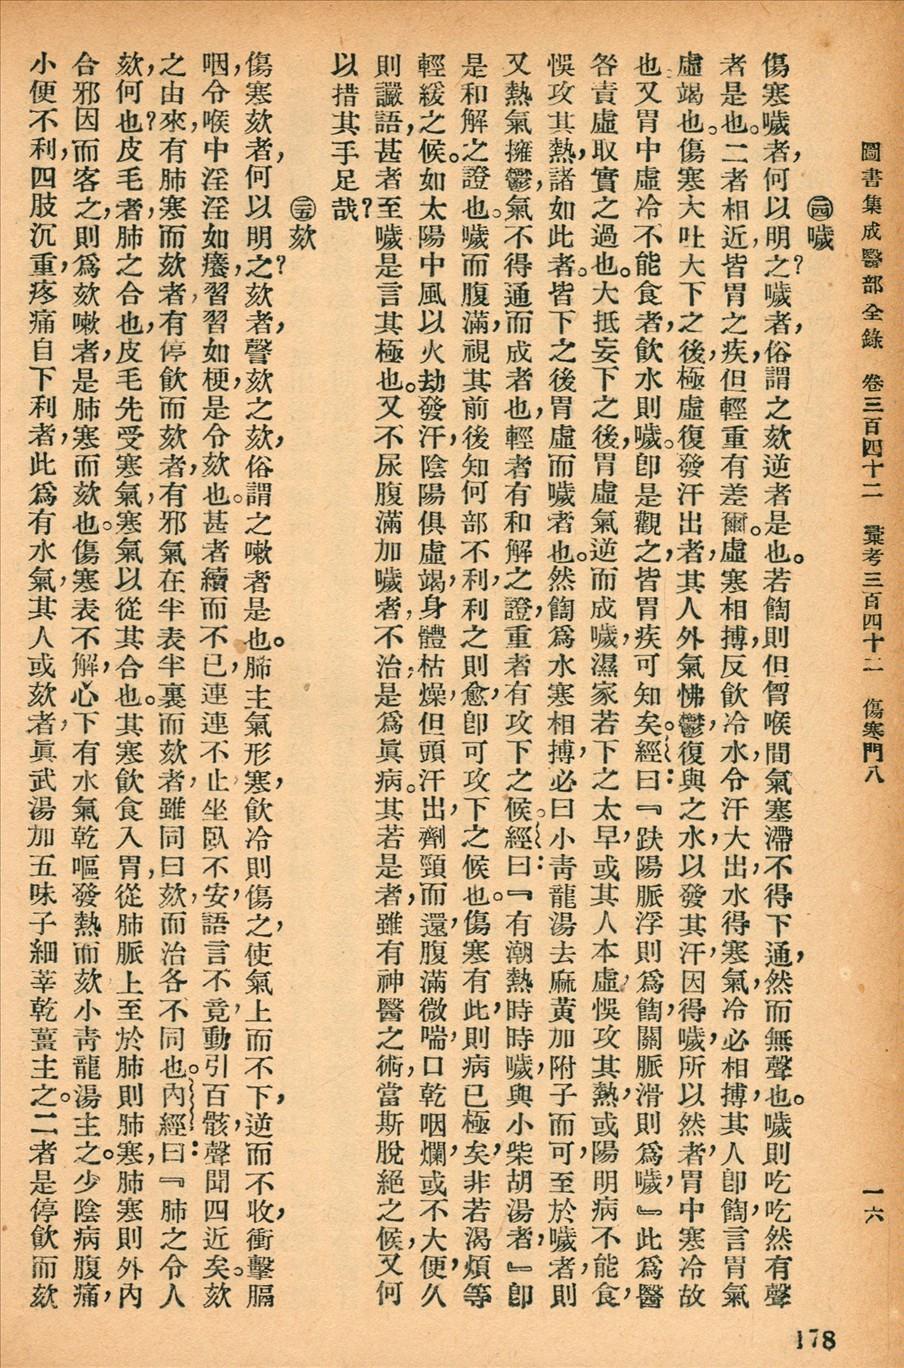 圖書集成醫部全錄　卷三百四十二　彙考三百四十二　傷寒門八　一六
㉞噦
傷寒噦者，何以明之？噦者，俗謂之欬逆者是也。若餲則但胷喉間氣塞滯不得下通，然而無聲也。噦則吃吃然有聲
者是也。二者相近，皆胃之疾，但輕重有差爾。虛寒相搏，反飲冷水，令汗大出，水得寒氣，冷必相搏，其人卽餲，言胃氣
虛竭也。傷寒大吐大下之後，極虛，復發汗出者，其人外氣怫鬱，復與之水，以發其汗，因得噦，所以然者，胃中寒冷故
也。又胃中虛冷不能食者，飲水則噦。卽是觀之，皆胃疾可知矣。經曰：『趺陽脈浮則爲餲，關脈滑則爲噦，』此爲醫
咎責虛取實之過也。大抵妄下之後，胃虛氣逆而成噦，濕家若下之太早，或其人本虛，悞攻其熱，或陽明病不能食，
悞攻其熱，諸如此者。皆下之後胃虛而噦者也。然餲爲水寒相搏，必曰小靑龍湯去麻黃加附子而可，至於噦者，則
又熱氣擁鬱，氣不得通而成者也，輕者有和解之證，重者有攻下之候。經曰：『有潮熱，時時噦，與小柴胡湯者，』卽
是和解之證也。噦而腹滿，視其前後知何部不利，利之則愈，卽可攻下之候也。傷寒有此，則病已極矣，非若渴煩等
輕緩之候。如太陽中風以火劫發汗，陰陽俱虛竭，身體枯燥，但頭汗出，劑頸而還，腹滿微喘，口乾咽爛，或不大便，久
則讝語，甚者至噦是言其極也。又不尿腹滿加噦者，不治，是爲眞病。其若是者，雖有神醫之術，當斯脫絕之候，又何
以措其手足哉？
㉟欬
傷寒欬者，何以明之？欬者，聲欬之欬，俗謂之嗽者是也。肺主氣形寒，飲冷則傷之，使氣上而不下，逆而不收，衝擊膈
咽，令喉中淫淫如癢，習習如梗，是令欬也。甚者續而不已，連連不止，坐臥不安，語言不竟，動引百骸，聲聞四近矣。欬
之由來，有肺寒而欬者，有停飲而欬者，有邪氣在半表半裏而欬者，雖同曰欬，而治各不同也。內經曰：『肺之令人
欬，何也？皮毛者，肺之合也，皮毛先受寒氣，寒氣以從其合也。其寒飲食入胃，從肺脈上至於肺則肺寒，肺寒則外內
合邪因而客之，則爲欬嗽者，是肺寒而欬也。傷寒表不解，心下有水氣乾嘔發熱而欬小靑龍湯主之。少陰病腹痛，
小便不利，四肢沉重，疼痛自下利者，此爲有水氣，其人或欬者，眞武湯加五味子細莘乾薑主之。二者是停飲而欬
178